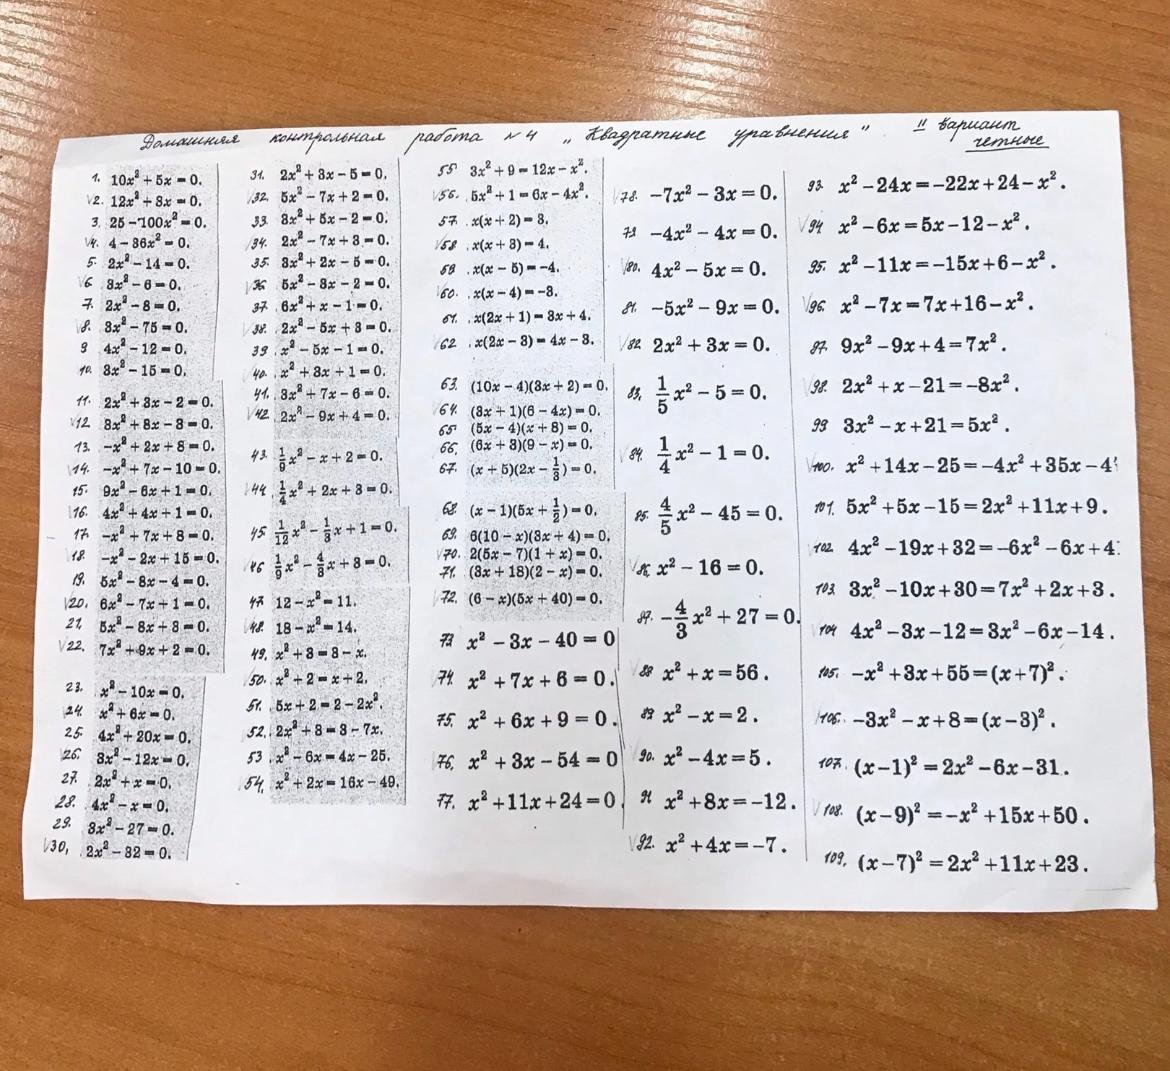 Домашняя контрольная работа №4 „Квадратные уравнения" II вариант
чётные
1. 10x² + 5x = 0.
2. 12x² + 8x = 0.
3. 25 - 100x² = 0.
4. 4 - 36x² = 0.
5. 2x² - 14 = 0.
6. 3x² - 6 = 0.
7. 2x² - 8 = 0.
8. 3x² - 75 = 0.
9 4x² - 12 = 0.
10. 3x² - 15 = 0.
11. 2x² + 3x - 2 = 0.
12 3x² + 8x - 3 = 0.
13. -x² + 2x + 8 = 0.
14. -x² + 7x - 10 = 0.
15. 9x² - 6x + 1 = 0.
16. 4x² + 4x + 1 = 0.
17. -x² + 7x + 8 = 0.
18. -x² - 2x + 15 = 0.
19. 5x² - 8x - 4 = 0.
20. 6x² - 7x + 1 = 0.
21. 5x² - 8x + 3 = 0.
22. 7x² + 9x + 2 = 0.
23. x² - 10x = 0.
24. x² + 6x = 0.
25. 4x² + 20x = 0.
26. 3x² - 12x = 0.
27. 2x² + x = 0.
28. 4x² - x = 0.
29. 3x² - 27 = 0.
30, 2x² - 32 = 0.
31. 2x² + 3x - 5 = 0.
32. 5x² - 7x + 2 = 0.
33. 3x² + 5x - 2 = 0.
34. 2x² - 7x + 3 = 0.
35. 3x² + 2x - 5 = 0.
36 5x² - 3x - 2 = 0.
37. 6x² + x - 1 = 0.
38. 2x² - 5x + 3 = 0.
39. x² - 5x - 1 = 0.
40. x² + 3x + 1 = 0.
41. 3x² + 7x - 6 = 0.
42 2x² - 9x + 4 = 0.
43. 1/9 x² - x + 2 = 0.
44 1/4 x² + 2x + 3 = 0.
45 1/12 x² - 1/3 x + 1 = 0.
46 1/9 x² - 4/3 x + 3 = 0.
47 12 - x² = 11.
48. 18 - x² = 14.
49. x² + 3 = 3 - x.
50. x² + 2 = x + 2.
51. 5x + 2 = 2 - 2x².
52. 2x² + 3 = 3 - 7x.
53 x² - 6x = 4x - 25.
54, x² + 2x = 16x - 49.
55 3x² + 9 = 12x - x².
56. 5x² + 1 = 6x - 4x².
57. x(x + 2) = 3.
58 x(x + 3) = 4.
59 x(x - 5) = -4.
60. x(x - 4) = -3.
61. x(2x + 1) = 3x + 4.
62 x(2x - 3) = 4x - 3.
63. (10x - 4)(3x + 2) = 0.
64. (3x + 1)(6 - 4x) = 0.
65 (5x - 4)(x + 8) = 0.
66, (6x + 3)(9 - x) = 0.
67. (x + 5)(2x - 1/3) = 0.
68. (x - 1)(5x + 1/2) = 0.
69. 6(10 - x)(3x + 4) = 0.
70. 2(5x - 7)(1 + x) = 0.
71. (3x + 18)(2 - x) = 0.
72. (6 - x)(5x + 40) = 0.
73 x² - 3x - 40 = 0
74. x² + 7x + 6 = 0.
75. x² + 6x + 9 = 0.
76, x² + 3x - 54 = 0
77. x² + 11x + 24 = 0
78. -7x² - 3x = 0.
79 -4x² - 4x = 0.
80. 4x² - 5x = 0.
81. -5x² - 9x = 0.
82 2x² + 3x = 0.
83, 1/5 x² - 5 = 0.
84. 1/4 x² - 1 = 0.
85. 4/5 x² - 45 = 0.
86 x² - 16 = 0.
87. -4/3 x² + 27 = 0.
88 x² + x = 56.
89 x² - x = 2.
90. x² - 4x = 5.
91 x² + 8x = -12.
92. x² + 4x = -7.
93. x² - 24x = -22x + 24 - x².
94 x² - 6x = 5x - 12 - x².
95. x² - 11x = -15x + 6 - x².
96. x² - 7x = 7x + 16 - x².
97. 9x² - 9x + 4 = 7x².
98. 2x² + x - 21 = -8x².
99 3x² - x + 21 = 5x².
100. x² + 14x - 25 = -4x² + 35x - 4
101. 5x² + 5x - 15 = 2x² + 11x + 9.
102. 4x² - 19x + 32 = -6x² - 6x + 4
103. 3x² - 10x + 30 = 7x² + 2x + 3.
104 4x² - 3x - 12 = 3x² - 6x - 14.
105. -x² + 3x + 55 = (x + 7)².
106. -3x² - x + 8 = (x - 3)².
107. (x - 1)² = 2x² - 6x - 31.
108. (x - 9)² = -x² + 15x + 50.
109, (x - 7)² = 2x² + 11x + 23.